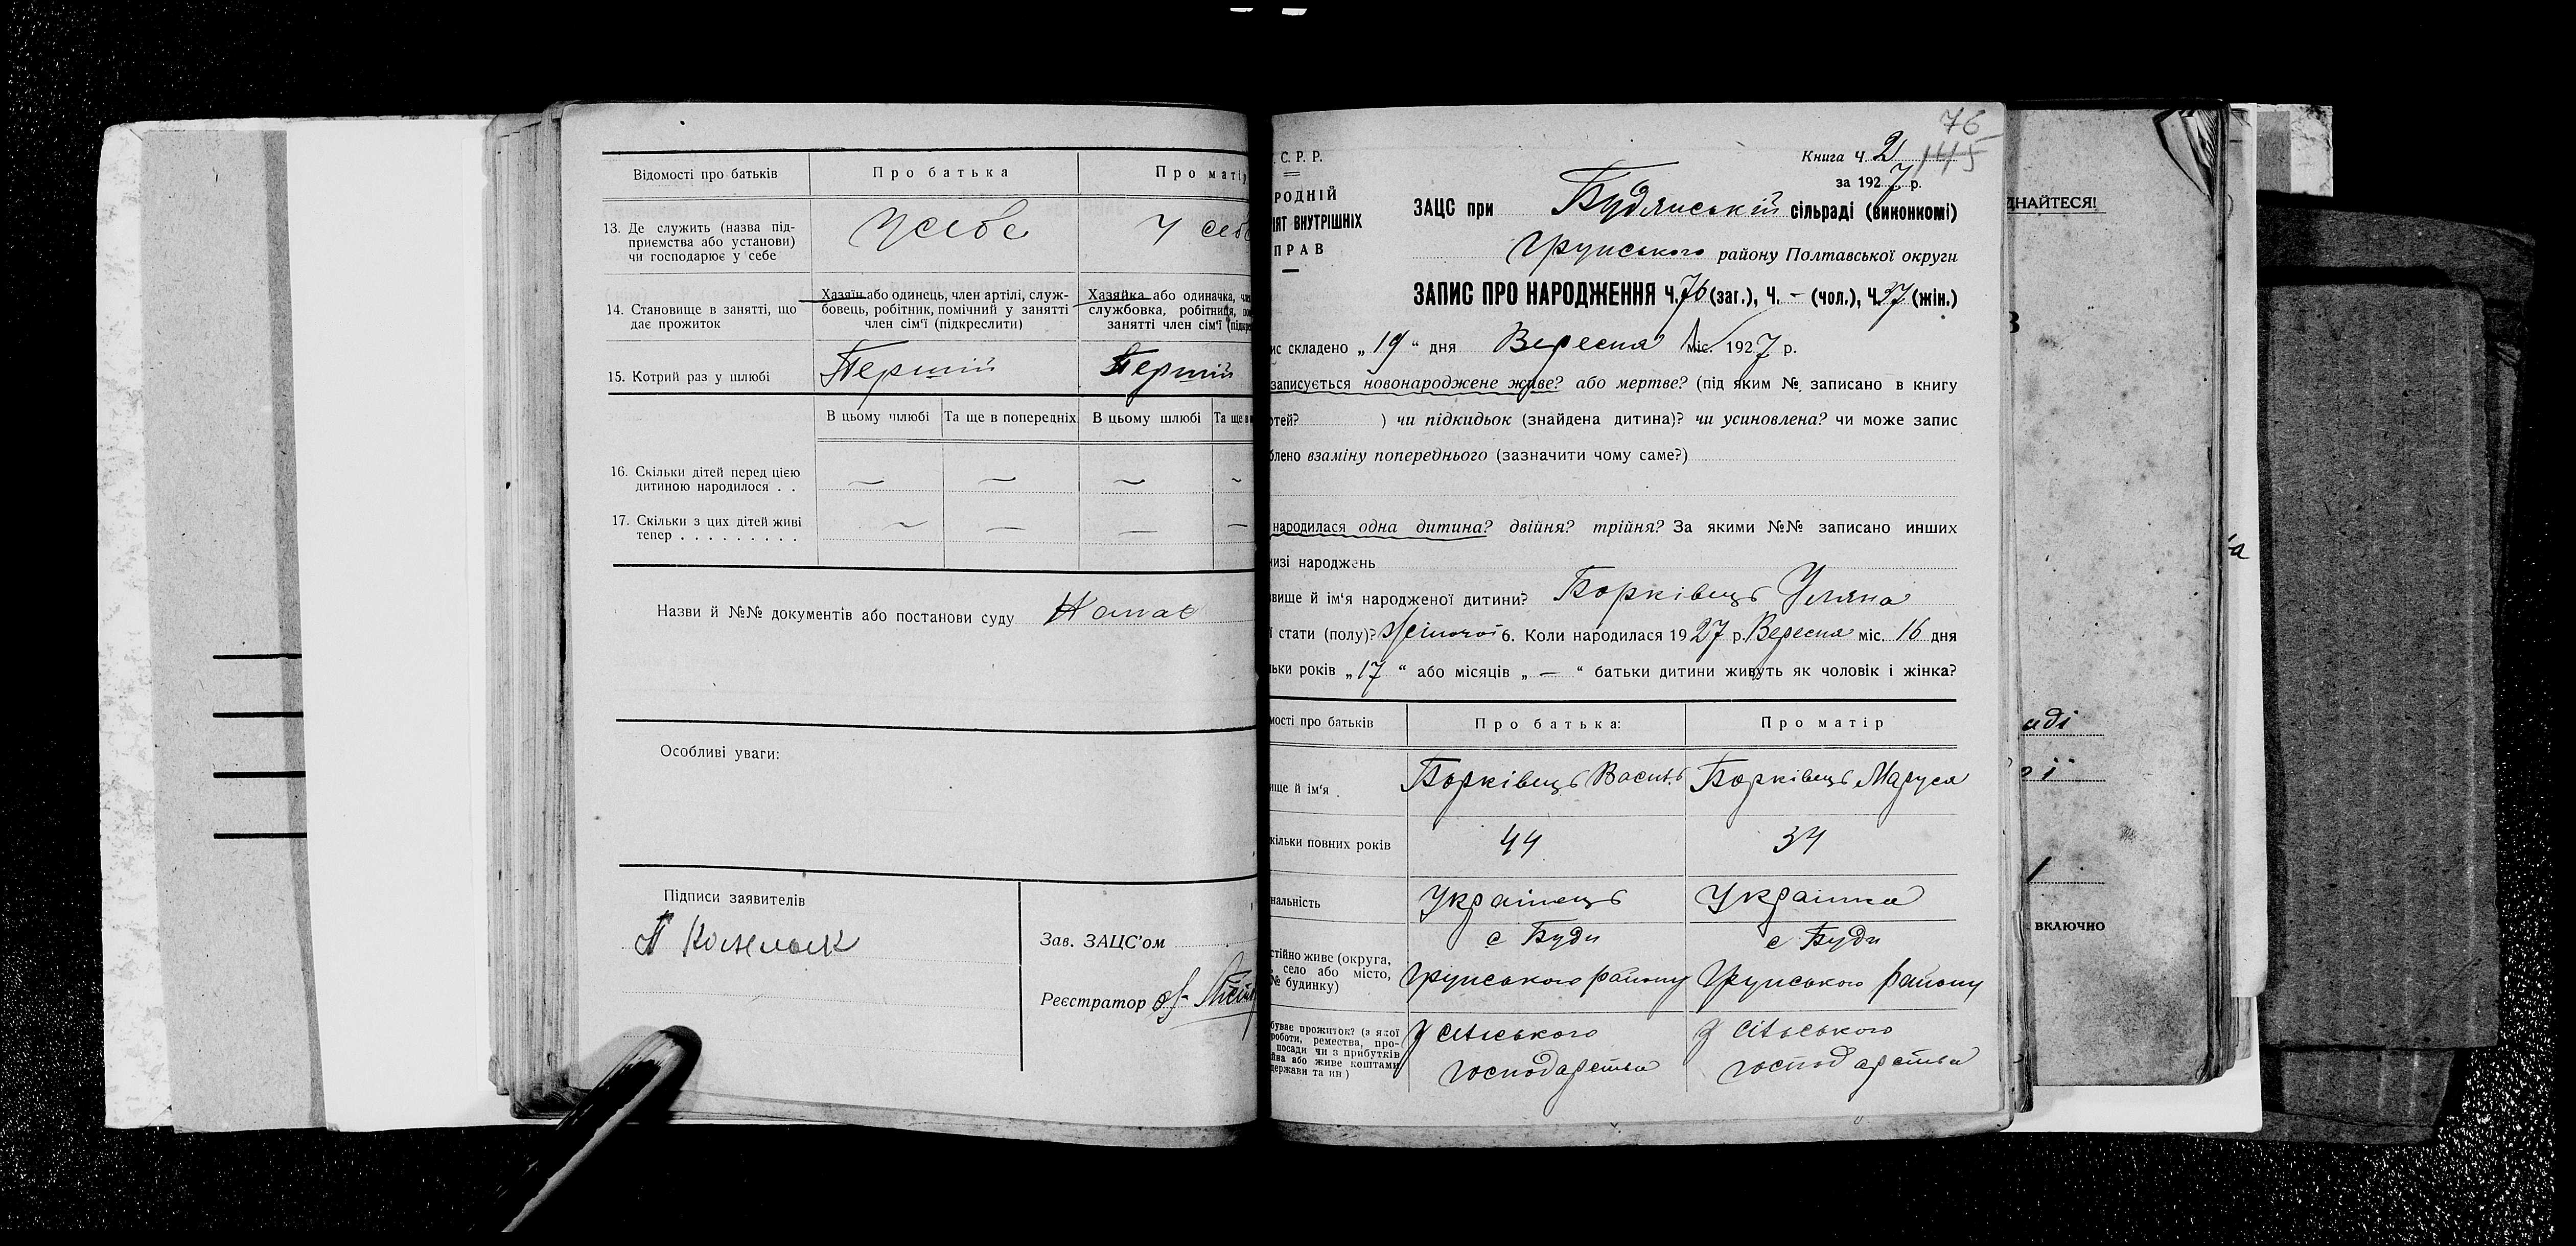 Відомості про батьків
Про батька
Про матір
13. Де служить (назва під-
приємства або установи)
чи господарює у себе
У себе
У себе
14. Становище в занятті, що
дає прожиток
Хазяїн або одинець, член артілі, служ-
бовець, робітник, помічний у занятті
член сім'ї (підкреслити)
Хазяйка або одиначка,
службовка, робітниця,
занятті член сім'ї
15. Котрий раз у шлюбі
Перший
Перший
В цьому шлюбі
Та ще в попередніх
В цьому шлюбі
Та ще в
16. Скільки дітей перед цією
дитиною народилося . .
17. Скільки з цих дітей живі
тепер . . . . . . . . .
Назви й №№ документів або постанови суду Немає
Особливі уваги:
Підписи заявителів
Зав. ЗАЦС'ом
Реєстратор
76
145
. С. Р. Р.
Книга ч. 2
за 1927 р.
РОДНІЙ
ІЯТ ВНУТРІШНІХ
ПРАВ
ЗАЦС при Будянській сільраді (виконкомі)
Грунського району Полтавської округи
ЗАПИС ПРО НАРОДЖЕННЯ Ч. 76 (заг.), Ч. – (чол.), Ч. 37 (жін.)
ис складено „19“ дня Вересня міс. 1927 р.
записується новонароджене живе? або мертве? (під яким № записано в книгу
ртей? ) чи підкидьок (знайдена дитина)? чи усиновлена? чи може запис
блено взаміну попереднього (зазначити чому саме?)
народилася одна дитина? двійня? трійня? За якими №№ записано инших
низі народжень
звище й ім'я народженої дитини? Борківець Уляна
ї стати (полу)? Жіночої 6. Коли народилася 1927 р. Вересня міс. 16 дня
льки років „17“ або місяців „—“ батьки дитини живуть як чоловік і жінка?
мості про батьків
Про батька:
Про матір
ище й ім'я
Борківець Василь
Борківець Маруся
кільки повних років
44
34
нальність
Українець
Українка
стійно живе (округа,
село або місто,
№ будинку)
с Буди
Грунського району
с Буди
Грунського району
буває прожиток? (з якої
роботи, ремества, про-
посади чи з прибутків
йва або живе коштами
держави та ин)
З сільського
господарства
З сільського
господарства
ДНАЙТЕСЯ!
аді
ої
ВКЛЮЧНО